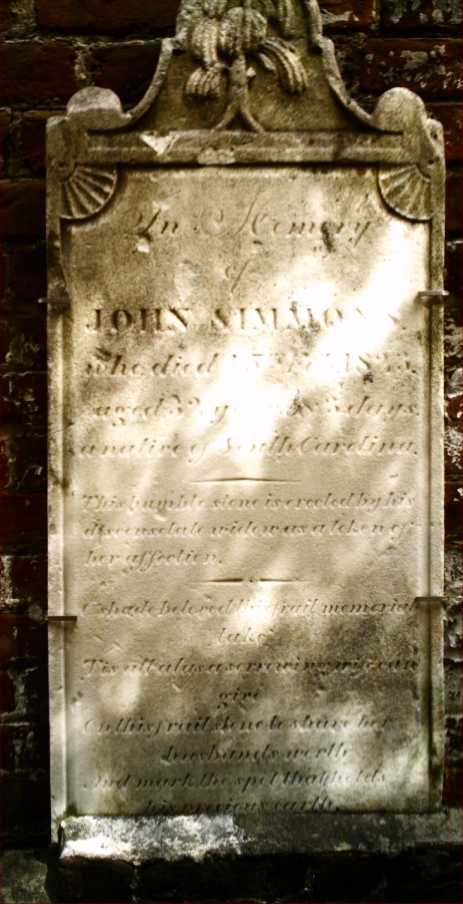 In Memory
of
JOHN SIMMONS.
who died 1823.
aged 3 days.
a native of South Carolina.
This humble stone is erected by his
disconsolate widow as a token of
her affection.
O shade beloved this frail memorial
take
Tis all alas a sorrowing wife can
give
On this frail stone to share her
husbands worth
And mark the spot that holds
his precious earth.